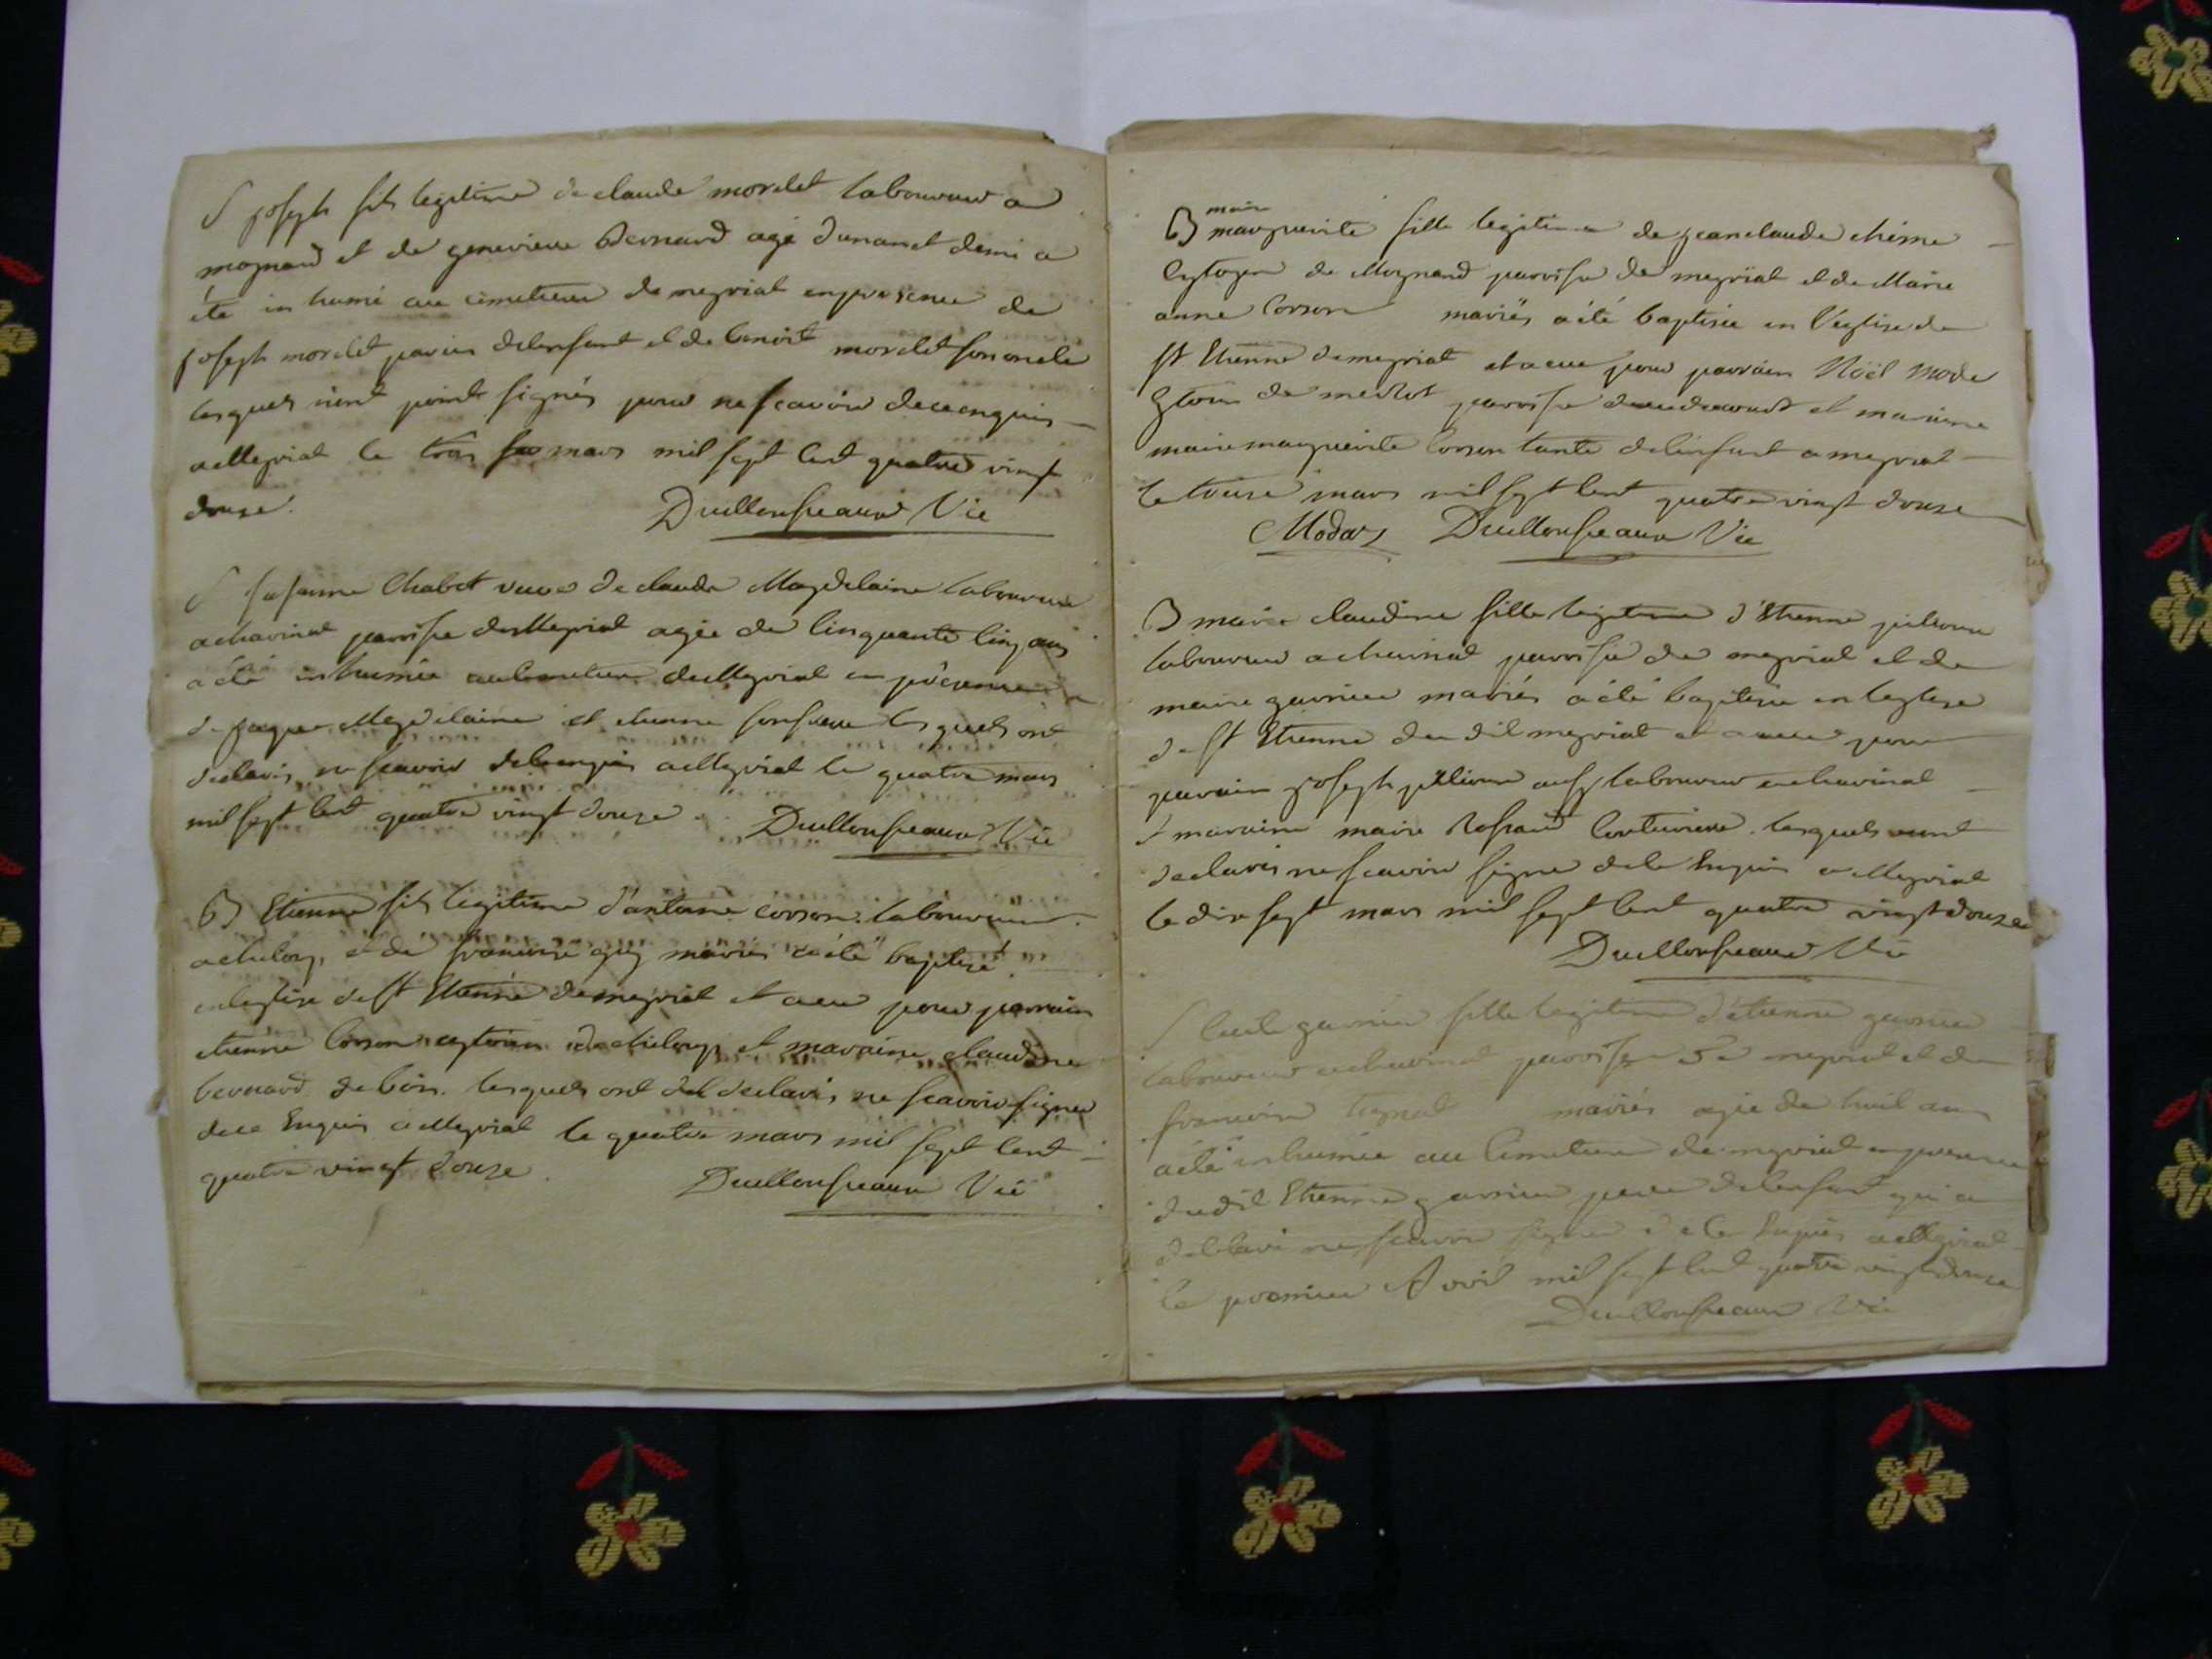 S joseph fils legitime de claude morelet laboureur a
mognard et de genevieve Bernard agé dunanet demi a
été in humé au cimetiere de meyriat enpresence de
joseph morelet delenfant et de benoit morelet son oncle
lesquels nont point signés pour ne scavoir de ce enquis
a Meyriat le trois mars mil sept cent quatre vingt
douze.
Duillonspeaux Vic
S susanne Chabot veuve de claude Magdelaine laboureur
a chavinat parroisse de Meyriat agée de Cinquante Cinq ans
a été inhumée au Cimetiere de Meyriat en présence
de jaque Magdelaine et etienne son frere les quels ont
declarés ne scavoir de ce enquis a Meyriat le quatre mars
mil sept cent quatre vingt douze. Duillonspeaux Vic
B Etienne fils legitime d'antoine corson laboureur
a chiloup, et de francoise guy mariés a été baptisé
en leglise de St Etienne de meyriat et a eu pour parrain
etienne Corson de chiloup et maraine claudine
bernard de bois. lesquels ont declarés ne scavoir signer
de ce Enquis a Meyriat le quatre mars mil sept cent
quatre vingt douze
Duillonspeaux Vic
marie
B marguerite fille legitime de jeanclaude chêne
Cytoyen de Mognard parroisse de meyriat et de Marie
anne Corson mariés a été baptisée en l'eglise de
St Etienne de meyriat et a eue pour parrain Noël
de parroisse et maraine
marie marguerite Corson tante de l'enfant a meyriat
le treise mars mil sept cent quatre vingt douze
Duillonspeaux Vic
B marie claudine fille legitime d'Etienne pillion
laboureur a chavinat parroisse de meyriat et de
marie garnier mariés a été baptisée en leglise
de St Etienne du dit meyriat et a eue pour
parain joseph pillion aussy laboureur a chavinat
et maraine marie Couturiere. lesquels
declarés ne scavoir signer de ce Enquis a Meyriat
le dix sept mars mil sept cent quatre vingt douze
Duillonspeaux Vic
S garnier fille legitime d'étienne garnier
laboureur a chavinat parroisse de meyriat et de
francoise mariés agée de huit ans
a été inhumée au Cimetiere de meyriat en presence
du dit Etienne garnier pere de lenfant qui a
declaré ne scavoir signer de ce Enquis a Meyriat
le premier Avril mil sept cent quatre vingt douze
Duillonspeaux Vic